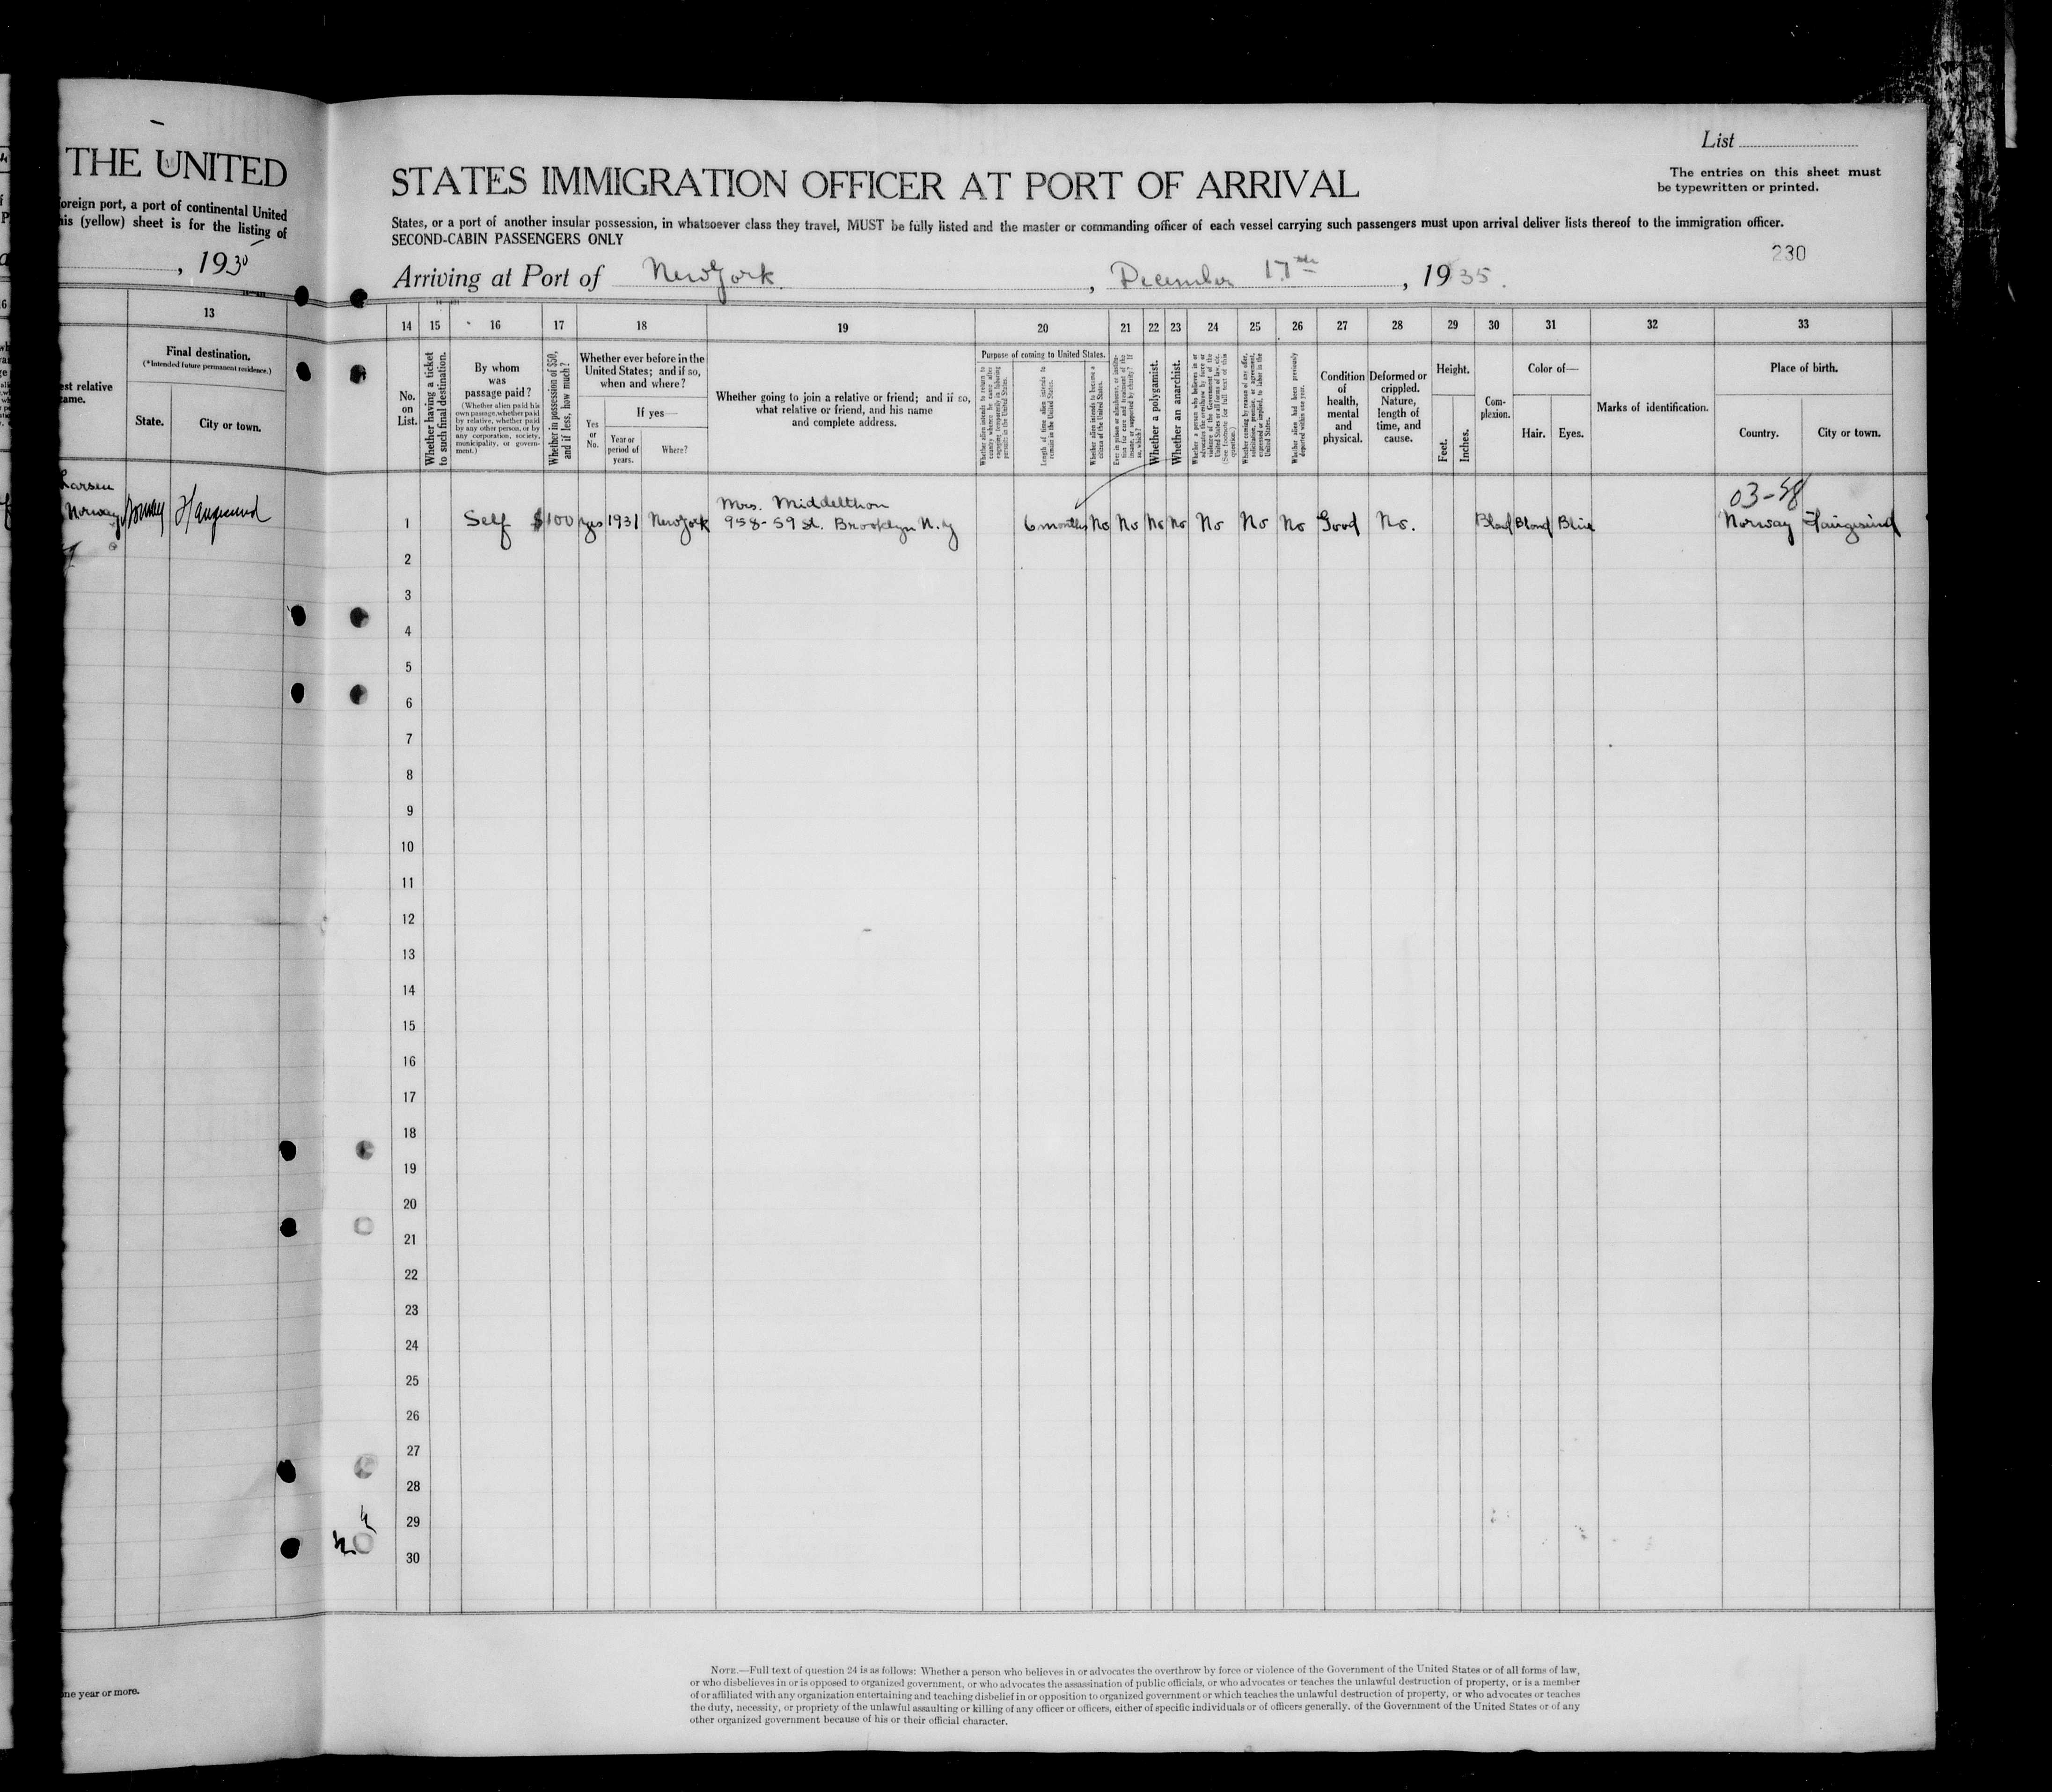 THE UNITED
oreign port, a port of continental United
his (yellow) sheet is for the listing of
, 193
13
Final destination.
(*Intended future permanent residence.)
est relative
ame.
State.
City or town.
Larsen
Norway
Norway
Haugesund
ne year or more.
List
The entries on this sheet must
be typewritten or printed.
STATES IMMIGRATION OFFICER AT PORT OF ARRIVAL
States, or a port of another insular possession, in whatsoever class they travel, MUST be fully listed and the master or commanding officer of each vessel carrying such passengers must upon arrival deliver lists thereof to the immigration officer.
SECOND-CABIN PASSENGERS ONLY
230
Arriving at Port of New York, December 17th, 1935.
14 15 16 17 18 19 20 21 22 23 24 25 26 27 28 29 30 31 32 33
No.
on
List.
Whether having a ticket
to such final destination.
By whom
was
passage paid?
(Whether alien paid his
own passage, whether paid
by relative, whether paid
by any other person, or by
any corporation, society,
municipality, or govern-
ment.)
Whether in possession of $50,
and if less, how much?
Whether ever before in the
United States; and if so,
when and where?
Yes
or
No.
If yes—
Year or
period of
years.
Where?
Whether going to join a relative or friend; and if so,
what relative or friend, and his name
and complete address.
Purpose of coming to United States.
Whether alien intends to return to
country whence he came after
engaging temporarily in laboring
pursuits in the United States.
Length of time alien intends to
remain in the United States.
Whether alien intends to become a
citizen of the United States.
Ever in prison or almshouse, or institu-
tion for care and treatment of the
insane, or supported by charity? If
so, which?
Whether a polygamist.
Whether an anarchist.
Whether a person who believes in or
advocates the overthrow by force or
violence of the Government of the
United States or all forms of law, etc.
(See footnote for full text of this
question.)
Whether coming by reason of any offer,
solicitation, promise, or agreement,
expressed or implied, to labor in the
United States.
Whether alien had been previously
deported within one year.
Condition
of
health,
mental
and
physical.
Deformed or
crippled.
Nature,
length of
time, and
cause.
Height.
Feet.
Inches.
Com-
plexion.
Color of—
Hair.
Eyes.
Marks of identification.
Place of birth.
Country.
City or town.
03-58
Mrs. Middelthon
1 Self $100 yes 1931 New York 958-59 St. Brooklyn N.Y 6 months No No No No No No No Good No. Blond Blond Blue Norway Haugesund
2
3
4
5
6
7
8
9
10
11
12
13
14
15
16
17
18
19
20
21
22
23
24
25
26
27
28
29
30
NOTE.—Full text of question 24 is as follows: Whether a person who believes in or advocates the overthrow by force or violence of the Government of the United States or of all forms of law,
or who disbelieves in or is opposed to organized government, or who advocates the assassination of public officials, or who advocates or teaches the unlawful destruction of property, or is a member
of or affiliated with any organization entertaining and teaching disbelief in or opposition to organized government or which teaches the unlawful destruction of property, or who advocates or teaches
the duty, necessity, or propriety of the unlawful assaulting or killing of any officer or officers, either of specific individuals or of officers generally, of the Government of the United States or of any
other organized government because of his or their official character.